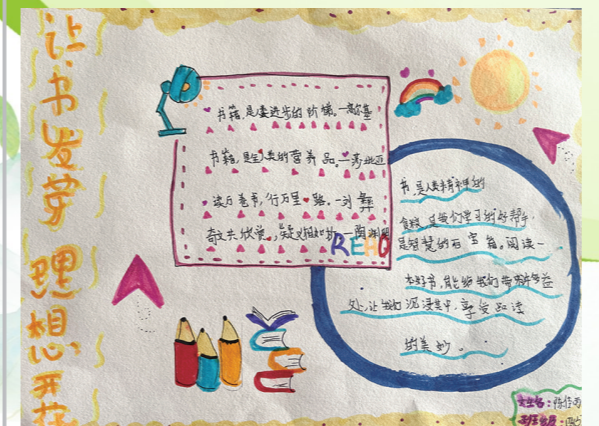 让书发芽 理想开花
书籍是人类进步的阶梯。—高尔基
书籍是全人类的营养品。—莎士比亚
读万卷书,行万里路。—刘彝
奇文共欣赏,疑义相如析。—陶渊明
READ
书,是人类精神的
食粮,是我们学习的好帮手,
是智慧的百宝箱。阅读一
本好书,能给我们带来许多益
处,让我们沉浸其中,享受品读
的美妙。
姓名:陈
班级: